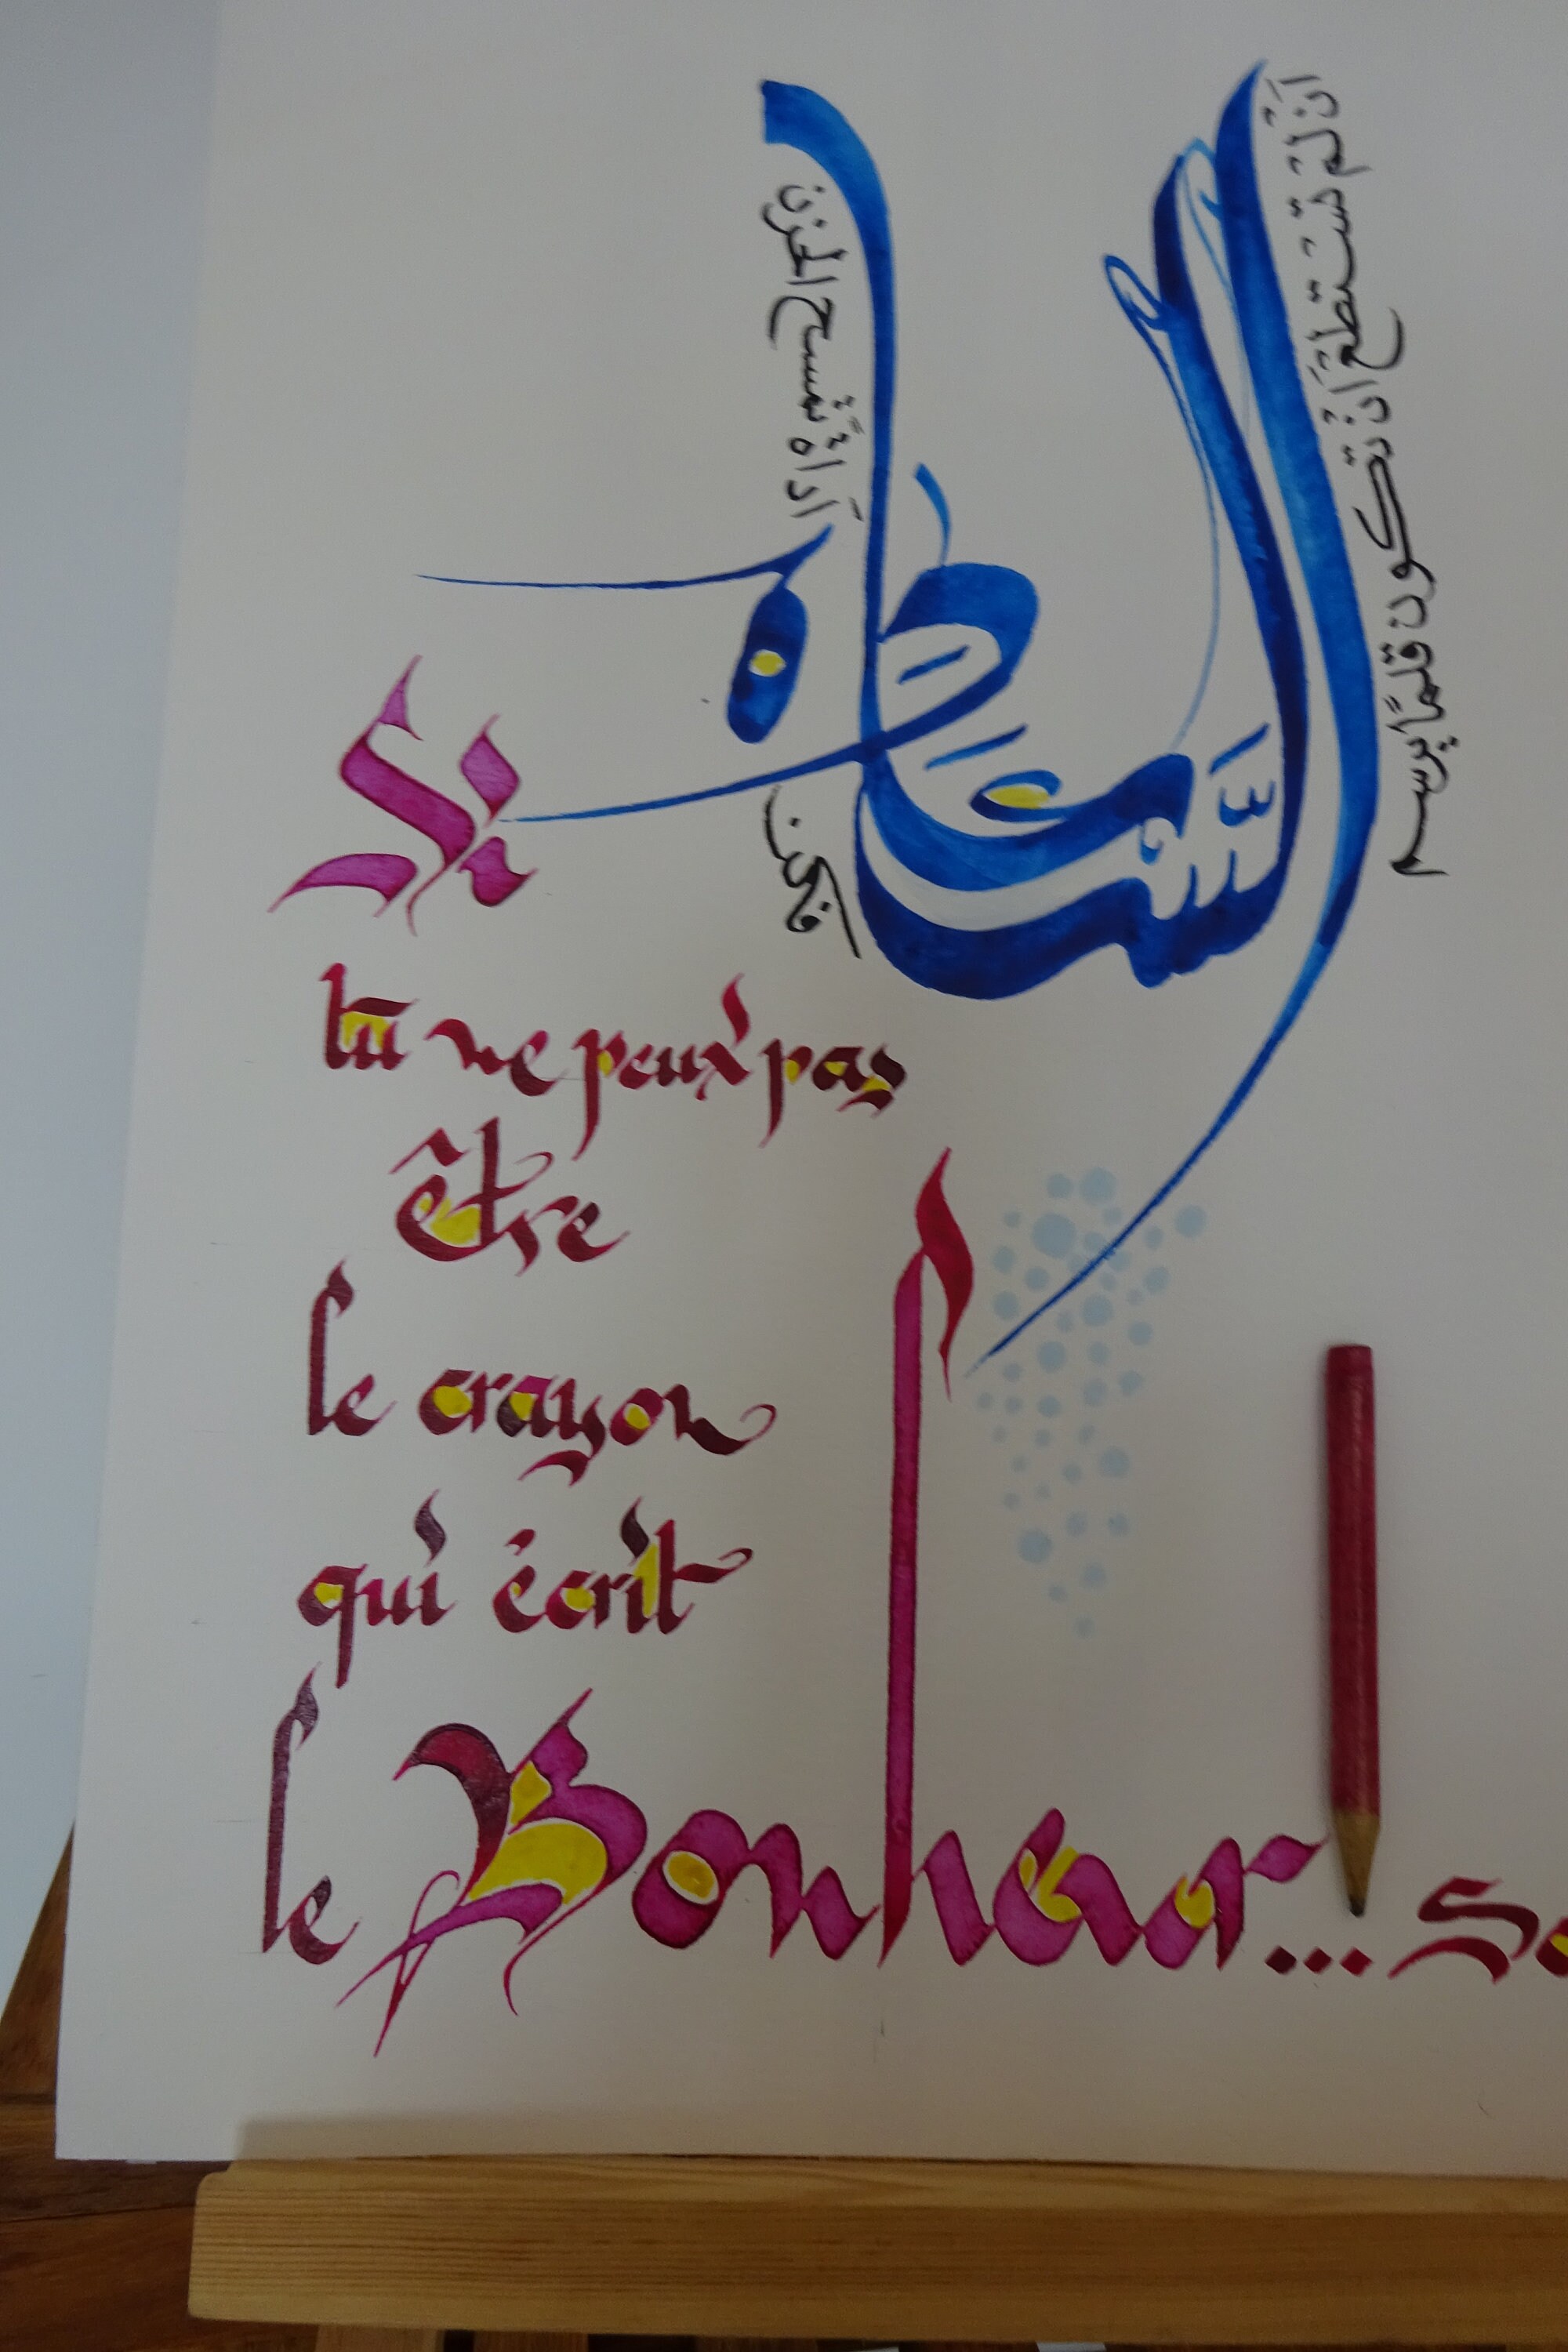 ان لم تستطع ان تكون قلمًا يرسم
السعادة
فكن
أداة تمسح الحزن
Si
tu ne peux pas
être
le crayon
qui écrit
le Bonheur...